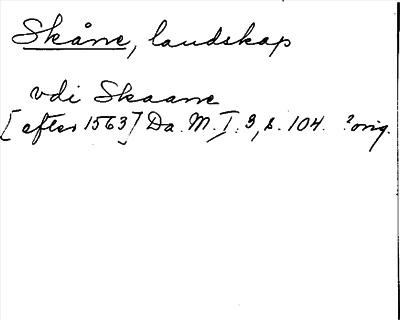 Skåne, landskap
vdi Skaane
[after 1563] Da. M. I. 3, s. 104. ?orig.